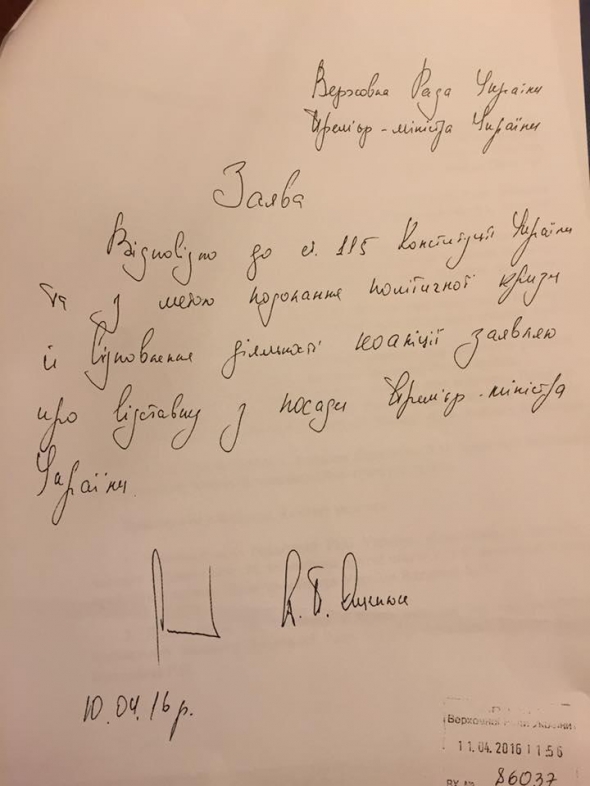 Верховна Рада України
Прем'єр-міністра України
Заява
Відповідно до ст. 115 Конституції України
та з метою подолання політичної кризи
й відновлення діяльності коаліції заявляю
про відставку з посади Прем'єр-міністра
України.
А. П. Яценюк
10.04.16 р.
Верховна Рада України
11.04.2016 11 56
86037